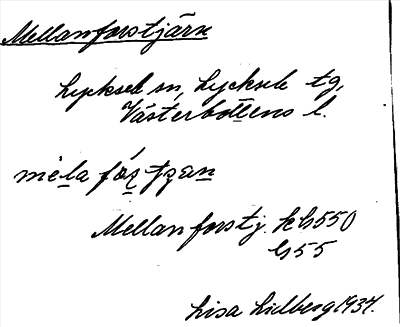 Mellanforstjärn
Lycksele sn, Lycksele tg,
Västerbottens l.
Mellanforstj. kb550
b55
Lisa Lidberg 1934.